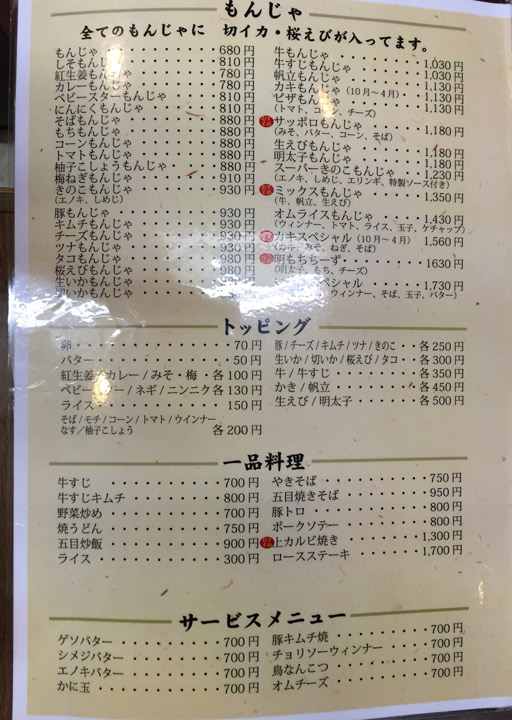 もんじゃ
全てのもんじゃに 切イカ・桜えびが入ってます。
もんじゃ 680円
しそもんじゃ 810円
紅生姜もんじゃ 780円
カレーもんじゃ 780円
ベビースターもんじゃ 810円
にんにくもんじゃ 810円
そばもんじゃ 880円
もちもんじゃ 880円
コーンもんじゃ 880円
トマトもんじゃ 880円
柚子こしょうもんじゃ 880円
梅ねぎもんじゃ 910円
きのこもんじゃ 930円
(エノキ、しめじ)
豚もんじゃ 930円
キムチもんじゃ 930円
チーズもんじゃ 930円
ツナもんじゃ 930円
タコもんじゃ 980円
桜えびもんじゃ 980円
生いかもんじゃ
切いかもんじゃ
牛もんじゃ 1,030円
牛すじもんじゃ 1,030円
帆立もんじゃ 1,130円
カキもんじゃ(10月～4月) 1,130円
ピザもんじゃ 1,130円
(トマト、コーン、チーズ)
サッポロもんじゃ 1,180円
(みそ、バター、コーン、そば)
生えびもんじゃ 1,180円
明太子もんじゃ 1,180円
スーパーきのこもんじゃ 1,230円
(エノキ、しめじ、エリンギ、特製ソース付き)
ミックスもんじゃ 1,350円
(牛、帆立、生えび)
オムライスもんじゃ 1,430円
(ウィンナー、トマト、ライス、玉子、ケチャップ)
カキスペシャル(10月～4月) 1,560円
みそ、ねぎ、そば)
明もちちーず 1630円
(明太子、もち、チーズ)
スペシャル 1,730円
ウィンナー、そば、玉子、バター)
トッピング
卵 70円
バター 50円
紅生姜 カレー/みそ・梅 各100円
ベビースター/ネギ/ニンニク 各130円
ライス 150円
そば/モチ/コーン/トマト/ウインナー
なす/柚子こしょう 各200円
豚/チーズ/キムチ/ツナ/きのこ 各250円
生いか/切いか/桜えび/タコ 各300円
牛/牛すじ 各350円
かき/帆立 各450円
生えび/明太子 各500円
一品料理
牛すじ 700円
牛すじキムチ 800円
野菜炒め 700円
焼うどん 750円
五目炒飯 900円
ライス 300円
やきそば 750円
五目焼きそば 950円
豚トロ 800円
ポークソテー 800円
上カルビ焼き 1,300円
ロースステーキ 1,700円
サービスメニュー
ゲソバター 700円
シメジバター 700円
エノキバター 700円
かに玉 700円
豚キムチ焼 700円
チョリソーウィンナー 700円
鳥なんこつ 700円
オムチーズ 700円